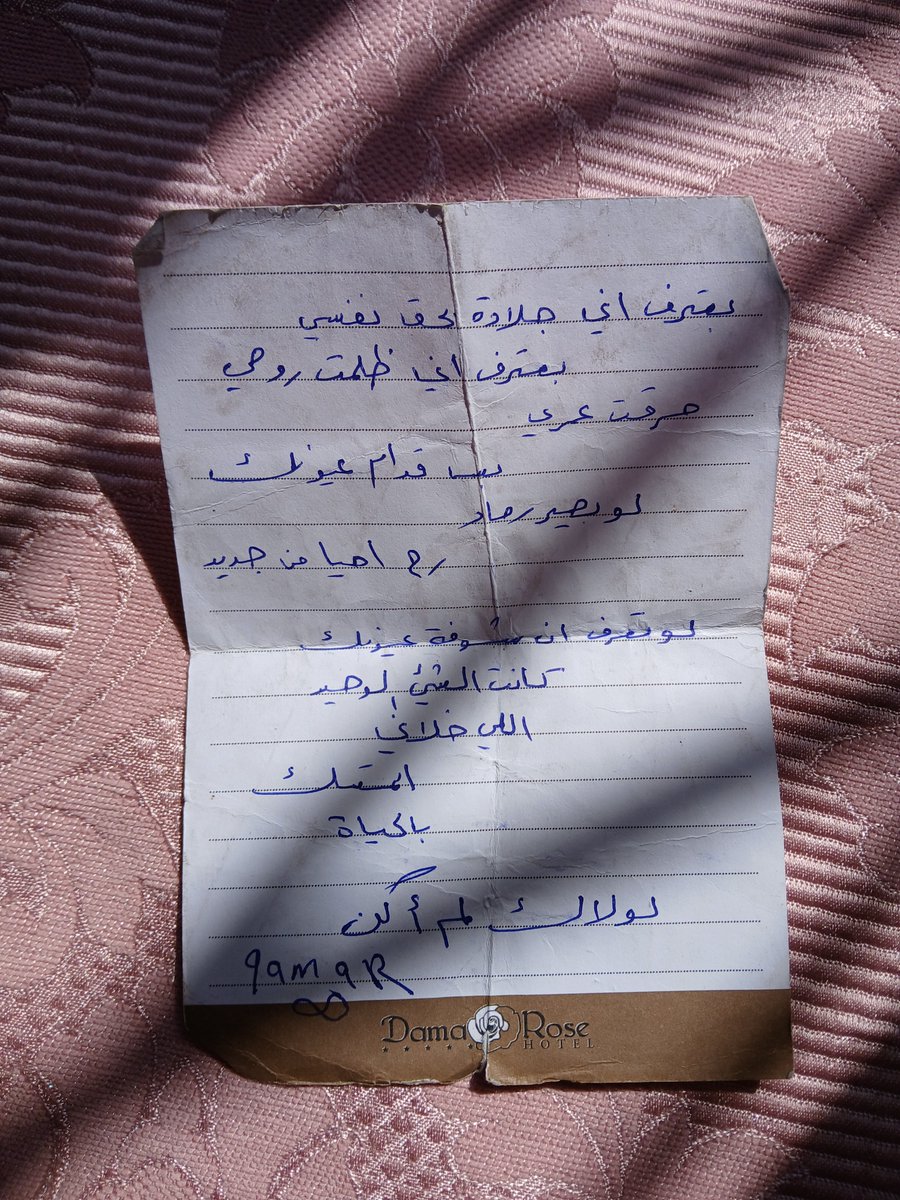 بعترف اني جلادة بحق نفسي
بعترف اني ظلمت روحي
حرقت عمري
بس قدام عيونك
لو بصير رماد
رح احيا من جديد
لو تعرف ان شوفة عيونك
كانت الشيئ الوحيد
اللي خلاني
اتمسك
بالحياة
لولاك لم أكن
qamaR
Dama Rose
HOTEL